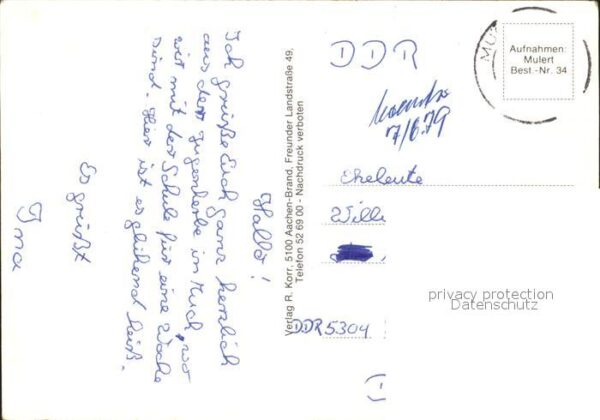 Hallo!
Ich grüße Euch ganz herzlich
aus der Jugendherbe in Much, wo
wir mit der Schule für eine Woche
sind. Hier ist es glühend heiß.
Es grüßt
Ina
Verlag R. Korr, 5100 Aachen-Brand, Freunder Landstraße 49,
Telefon 52 69 00 - Nachdruck verboten
DDR
7/6.79
Eheleute
Willi
DDR 5304
Aufnahmen:
Mulert
Best.-Nr. 34
MU
privacy protection
Datenschutz